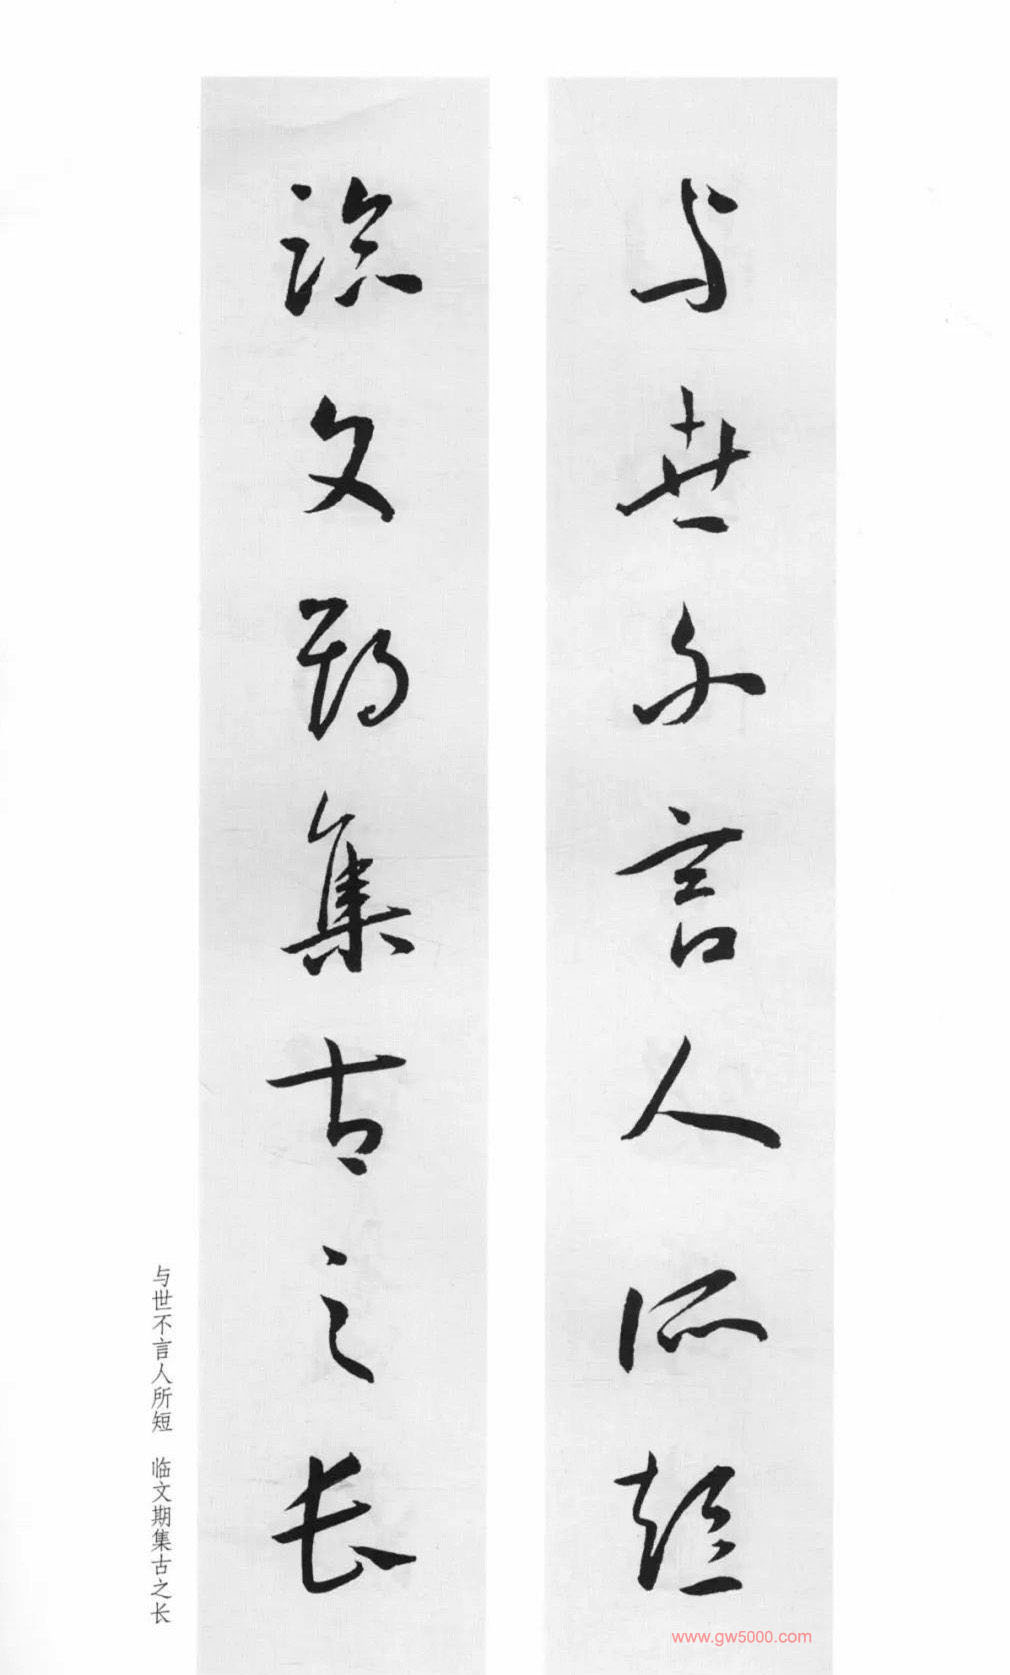 与世不言人所短
临文期集古之长
与世不言人所短 临文期集古之长
www.gw5000.com